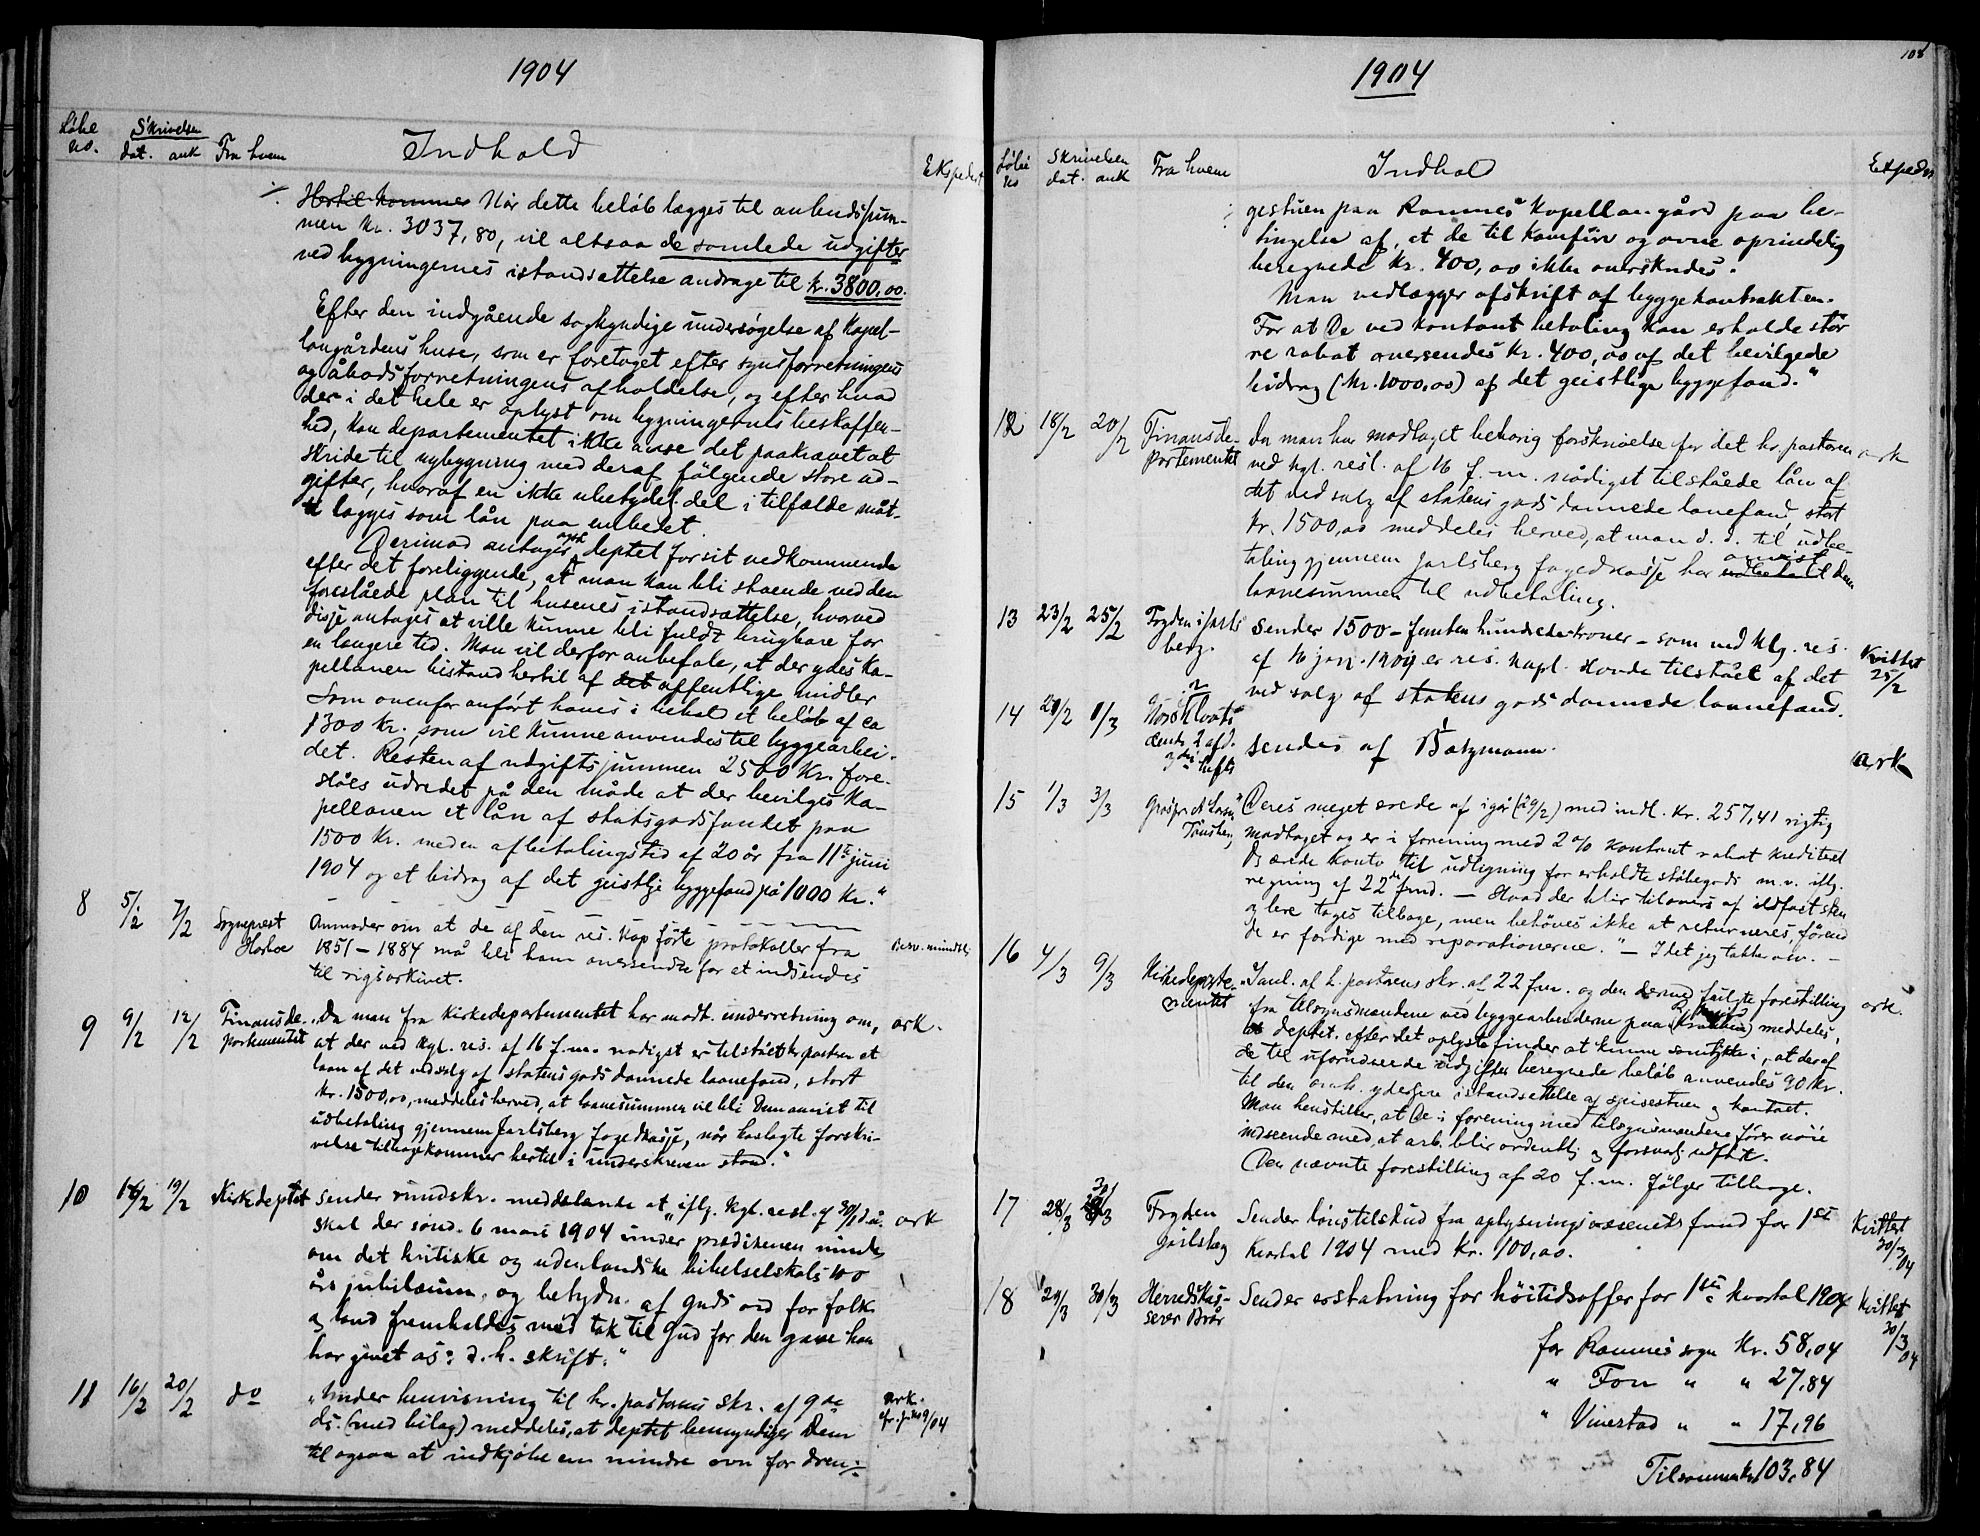 1904
Løbe
no.
Skrivelsen
dat. ank
Fra hvem
Indhold
Ekspedert
./.
Hertil kommer Når dette beløb lægges til anbudssum-
men Kr. 3037,80, vil altsaa de samlede udgifter
ved bygningernes istandsættelse andrage til kr. 3800,00.
Efter den indgående sagkyndige undersøgelse af Kapel-
langårdens huse, som er foretaget efter synsforretningens
og åbodsforretningens afholdelse, og efter hvad
der i det hele er oplyst om bygningernes beskaffen-
hed, kan departementet ikke anse det paakrævet at
skride til nybygning med deraf følgende store ud-
gifter, hvoraf en ikke ubetydel. del i tilfælde måt-
te lægges som lån paa embedet.
Derimod antager deptet for sit vedkommende
efter det foreliggende, at man kan bli staende ved den
foreslåede plan til husenes istandsættelse, hvorved
disse antages at ville kunne bli fuldt brugbare for
en længere tid. Man vil derfor anbefale, at der ydes ka-
pellanen bistand hertil af det offentlige midler
Som ovenfor anført haves i behold et beløb af ca
1300 kr. som vil kunne anvendes til byggearbei-
det. Resten af udgiftssummen 2500 Kr. fore-
slåes udredet på den måde at der bevilges Ka-
pellanen et lån af statsgodsfondet paa
1500 Kr. med en afbetalingstid af 20 år fra 11te juni
1904 og et bidrag af det geistlige byggefond på 1000 Kr."
8 5/2 7/2 Sogneprest
Anmoder om at de af den res. Kap førte protokoller fra
1851 – 1884 må bli ham oversendte for at indsendes
til rigsarkivet.
Besv. mundtl.
9 9/2 12/2 Finansde-
partementet
"Da man fra Kirkedepartementet har modt. underretning om,
at der ved kgl. res. af 16 f.m. nådigst er tilstået hr. pastoren et
laan af det ved salg af statens gods dannede laanefond, stort
kr. 1500,00, meddeles herved, at laanesummen vil bli Dem anvist til
udbetaling gjennem Jarlsberg fogedkasse, når vedlagte forskri-
velse tilbagekommer hertil i underskreven stand."
ark.
10 16/2 19/2 Kirkedeptet
Sender rundskr. meddelende at "iflg. kgl. resl. af 30/1 d.å.
skal der sønd. 6 mars 1904 under prædikenen mindes
om det britiske og udenlandske bibelselskabs 100
års jubilæum, og betydn. af Guds ord for folk
og land fremholdes med tak til Gud for den gave han
har givet os: d.h. skrift."
ark
11 16/2 20/2 do
"Under henvisning til hr. pastorens skr. af 9de
ds. (med bilag) meddeles, at deptet bemyndiger Dem
til ogsaa at indkjøbe en mindre ovn for dren-
ark.
1904
108
Løbe
no
Skrivelsen
dat. ank
Fra hvem
Indhold
Expedert
gestuen paa Ramnes Kapellangård paa be-
tingelse af, at de til komfur og ovne oprindelig
beregnede Kr. 400,00 ikke overskrides.
Man vedlægger afskrift af byggekontrakten.
For at De ved kontant betaling kan erholde stør
re rabat oversendes Kr. 400,00 af det bevilgede
bidrag (kr. 1000,00) af det geistlige byggefond."
12 18/2 20/2 Finansde-
partementet
Da man har modtaget behørig forskrivelse for det hr. pastoren
ved kgl. resl. af 16 f.m. nådigst tilståede lån af
det ved salg af statens gods dannede lanefond stort
kr. 1500,00 meddeles herved, at man d.d. til udbe-
taling gjennem Jarlsberg fogedkasse har udbetalt anvist dem
laanesummen til udbetaling.
ark
13 23/2 25/2 Fogden i Jarls
berg.
Sender 1500 – femten hundrede kroner – som ved Kgl. res.
af 16 jan. 1904 er res. kapl. Hovde tilstået af det
ved salg af statens gods dannede laanefond.
Kvittert
25/2
14 29/2 1/3
sendes af Bætzmann.
ark
15 1/3 3/3
Tønsberg
"Deres meget ærede af igår (29/2) med indl. kr. 257,41 rigtig
modtaget og er i forening med 2% kontant rabat krediteret
Ds ærede konto til udligning for erholdte støbegods m.v. iflg.
regning af 22de fmd. — Hvad der blir tilovers af ildfast sten
og lere tages tilbage, men behøves ikke at returneres, førend
de er færdige med reparationerne." — Idet jeg takker osv. –
16 4/3 9/3 Kirkedeparte-
mentet
"I anl. af h. pastorens skr. af 22 f.m. og den dermed fulgte forestilling
fra tilsynsmændene ved byggearbeiderne paa meddeles,
at deptet. efter det oplyste finder at kunne samtykke i, at deraf
de til uforudseede udgifter beregnede beløb anvendes 90 kr.
til den omh. ydeligere istandsettelse af spisestuen og kontoret.
Man henstiller, at De i forening med tilsynsmændene fører nøie
indseende med, at arb. blir ordentlig og forsvarlig udført.
Den nævnte forestilling af 20 f.m. følger tilbage.
ark.
17 28/3 30/3 Fogden
Jarlsberg
Sender lønstilskud fra oplysningsvæsenets fond for 1ste
kvartal 1904 med kr. 100,00.
Kvittert
30/3 04
18 29/3 30/3 Herredskas-
serer Brår
Sender erstatning for høitidsoffer for 1ste kvartal 1904
for Ramnes sogn Kr. 58,04
" Fon " " 27,84
" Vivestad " " 17,96
Tilsammen kr 103,84
Kvittert
30/3 04